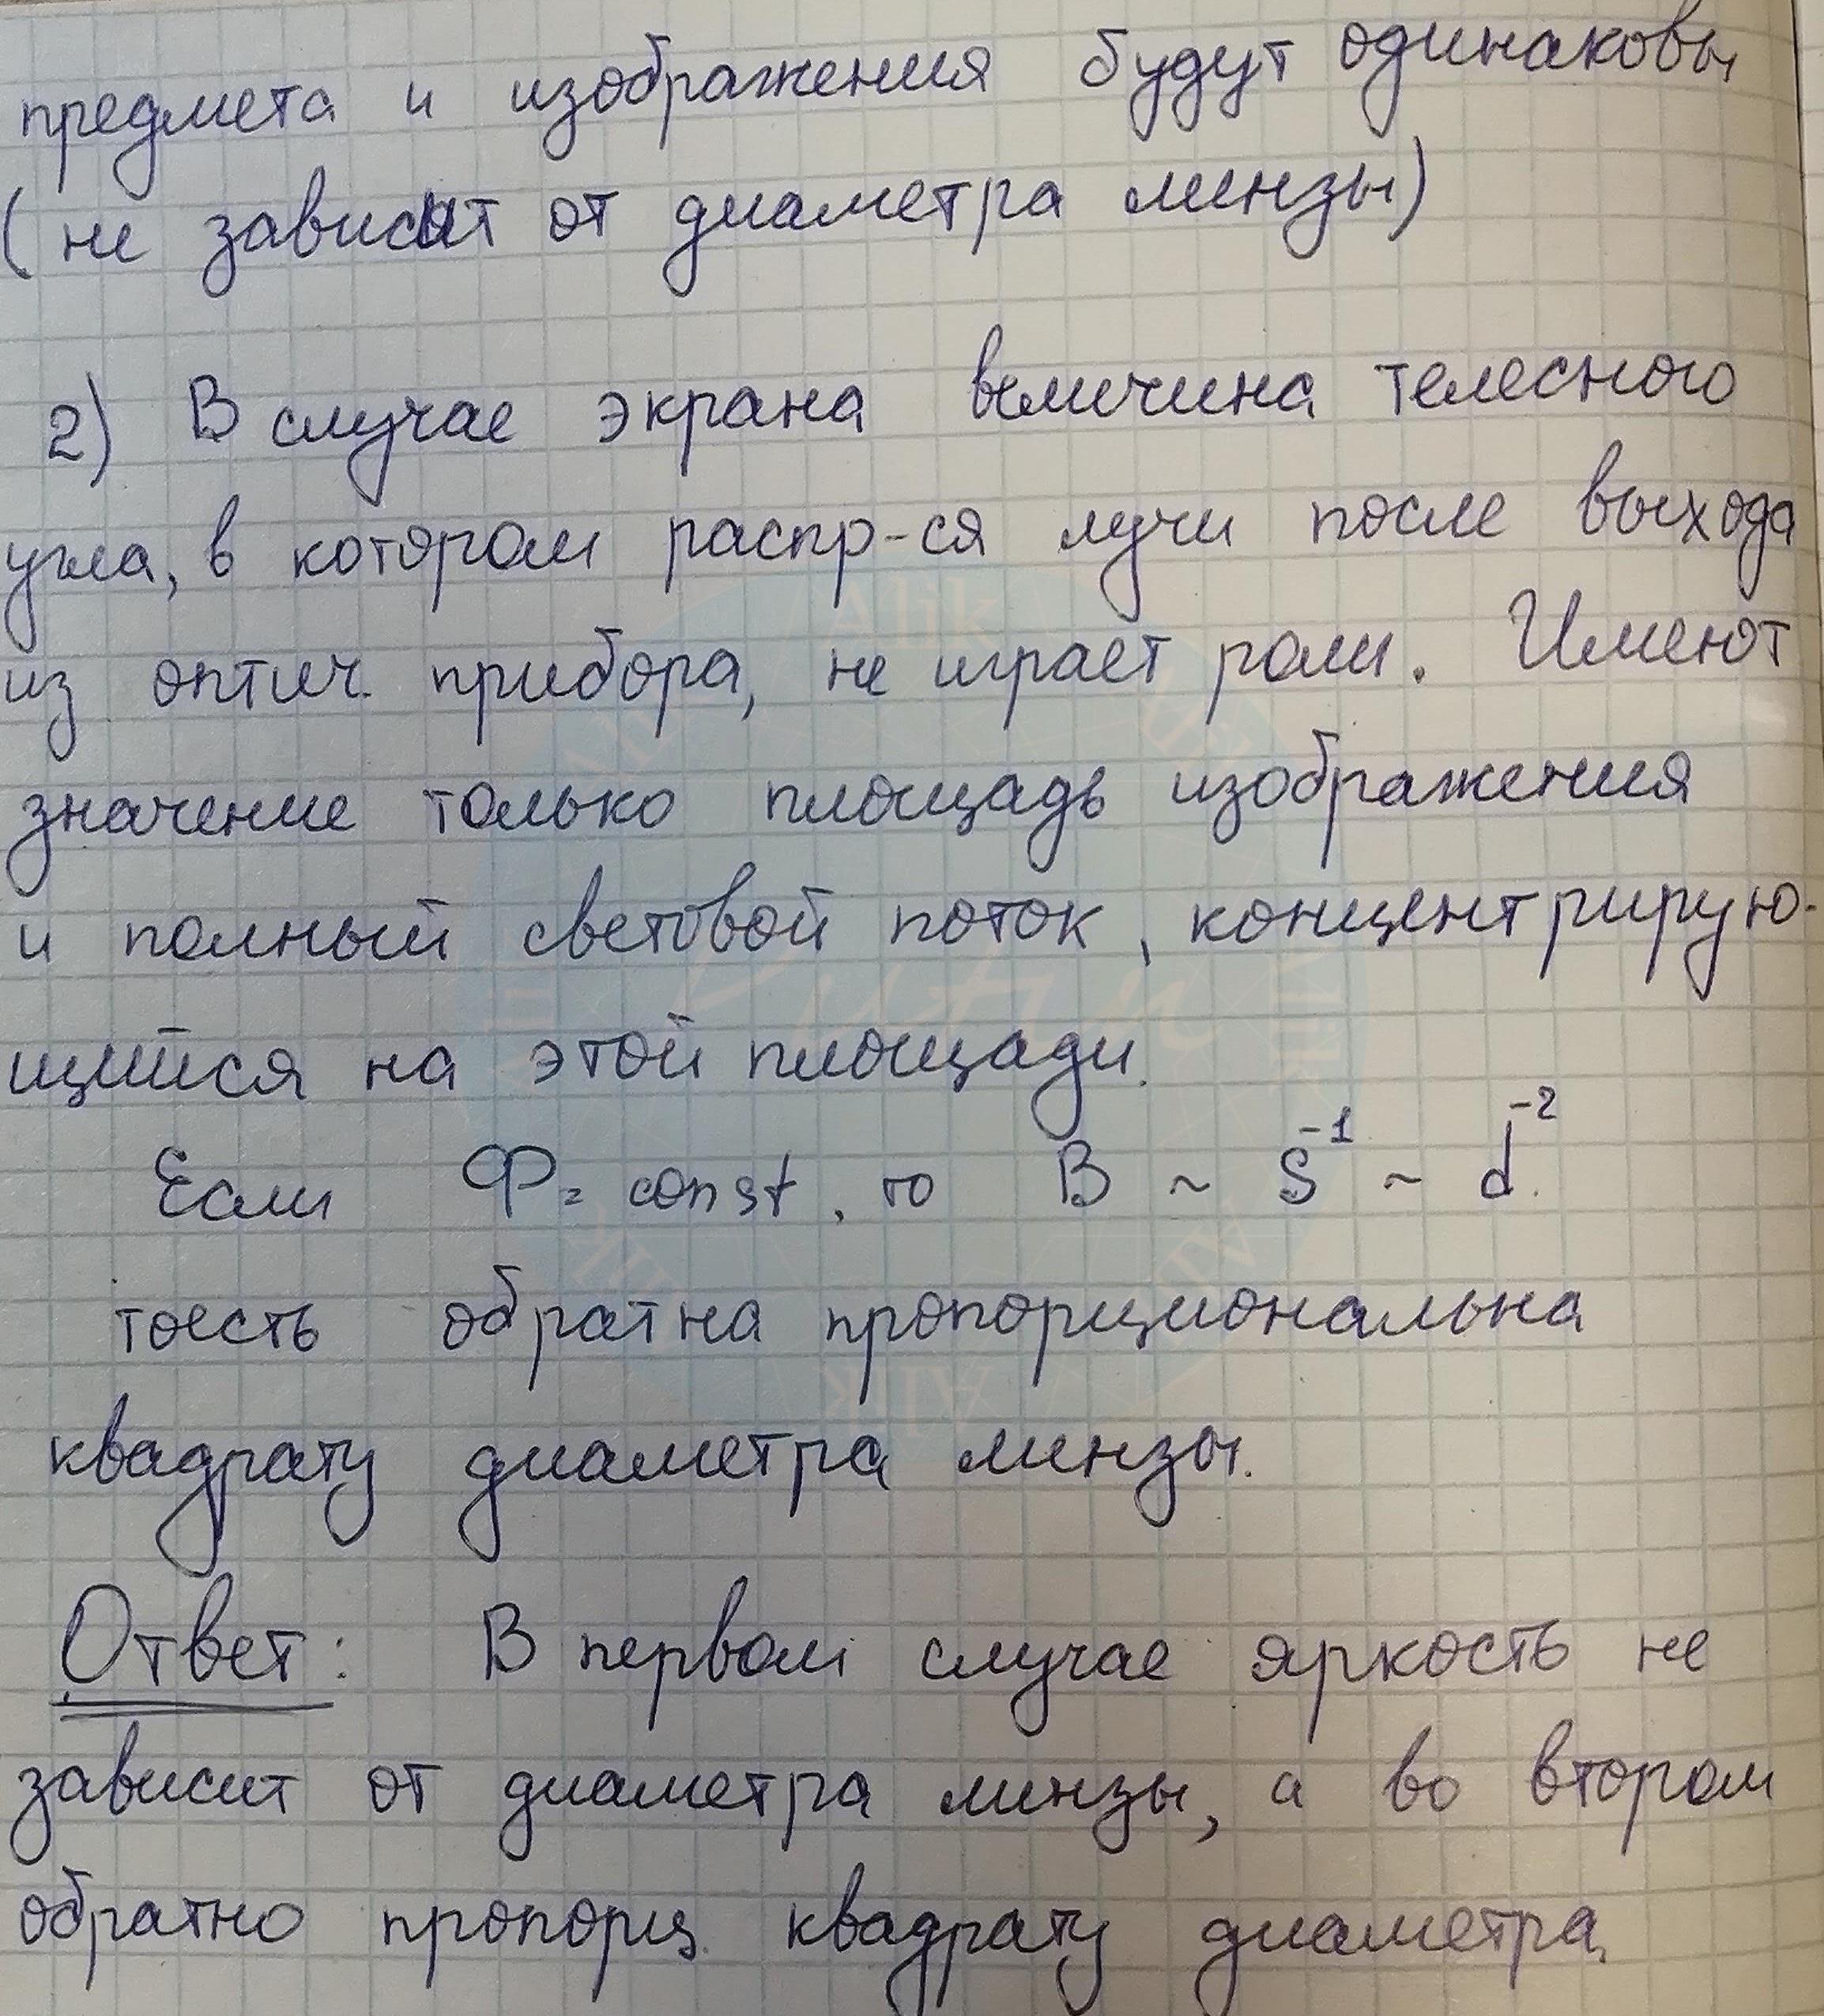 предмета и изображения будут одинаковы
(не зависит от диаметра линзы)
2) В случае экрана величина телесного
угла, в котором распр-ся лучи после выхода
из оптич. прибора, не играет роли. Имеют
значение только площадь изображения
и полный световой поток, концентрирую-
щийся на этой площади.
Если Ф = const, то B ~ S⁻¹ ~ d⁻².
тоесть обратна пропорциональна
квадрату диаметра линзы.
Ответ: В первом случае яркость не
зависит от диаметра линзы, а во втором
обратно пропорц. квадрату диаметра
Alik